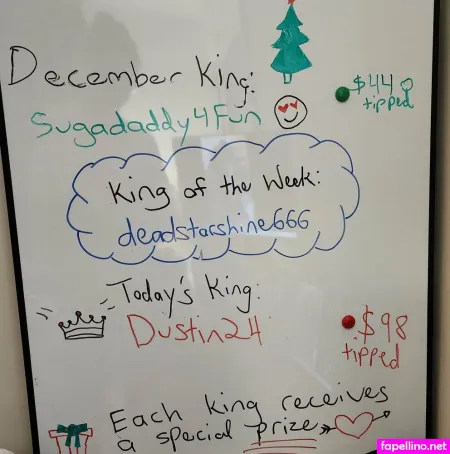 December King:
Sugadaddy4Fun
$44
tipped
King of the Week:
deadstarshine666
Today's King:
Dustin24
$98
tipped
Each king receives
a special prize
fapellino.net